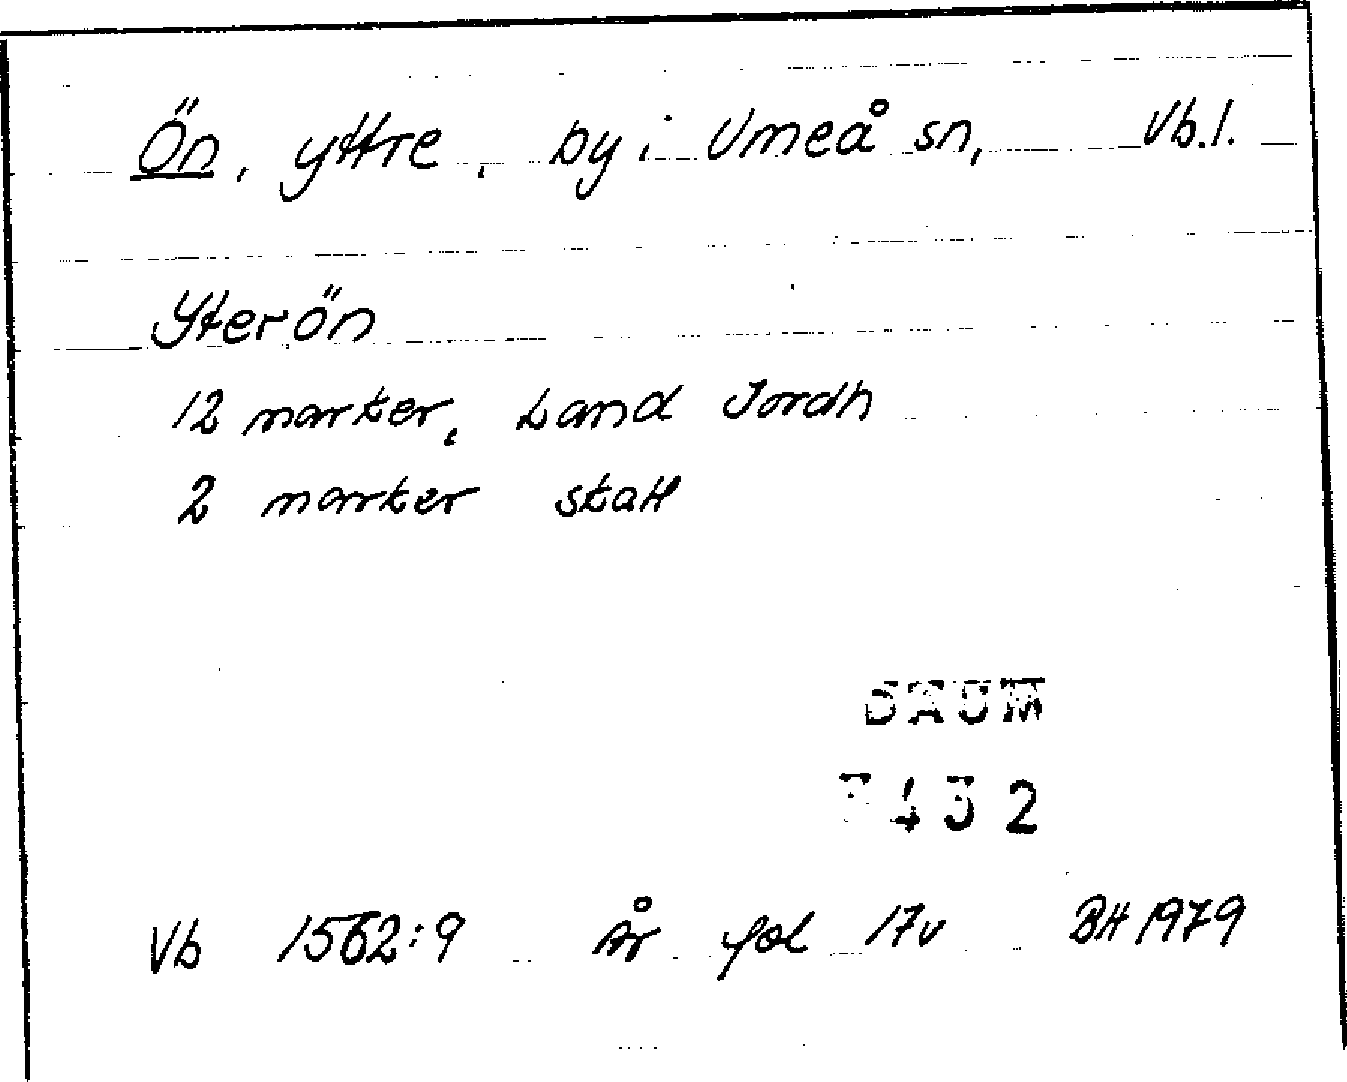 Ön, yttre, by i Umeå sn, Vb.l.
Yterön
12 marker, Land Jordh
2 marker skatt
DAUM
3432
Vb 1562:9 år fol 17v BH 1979